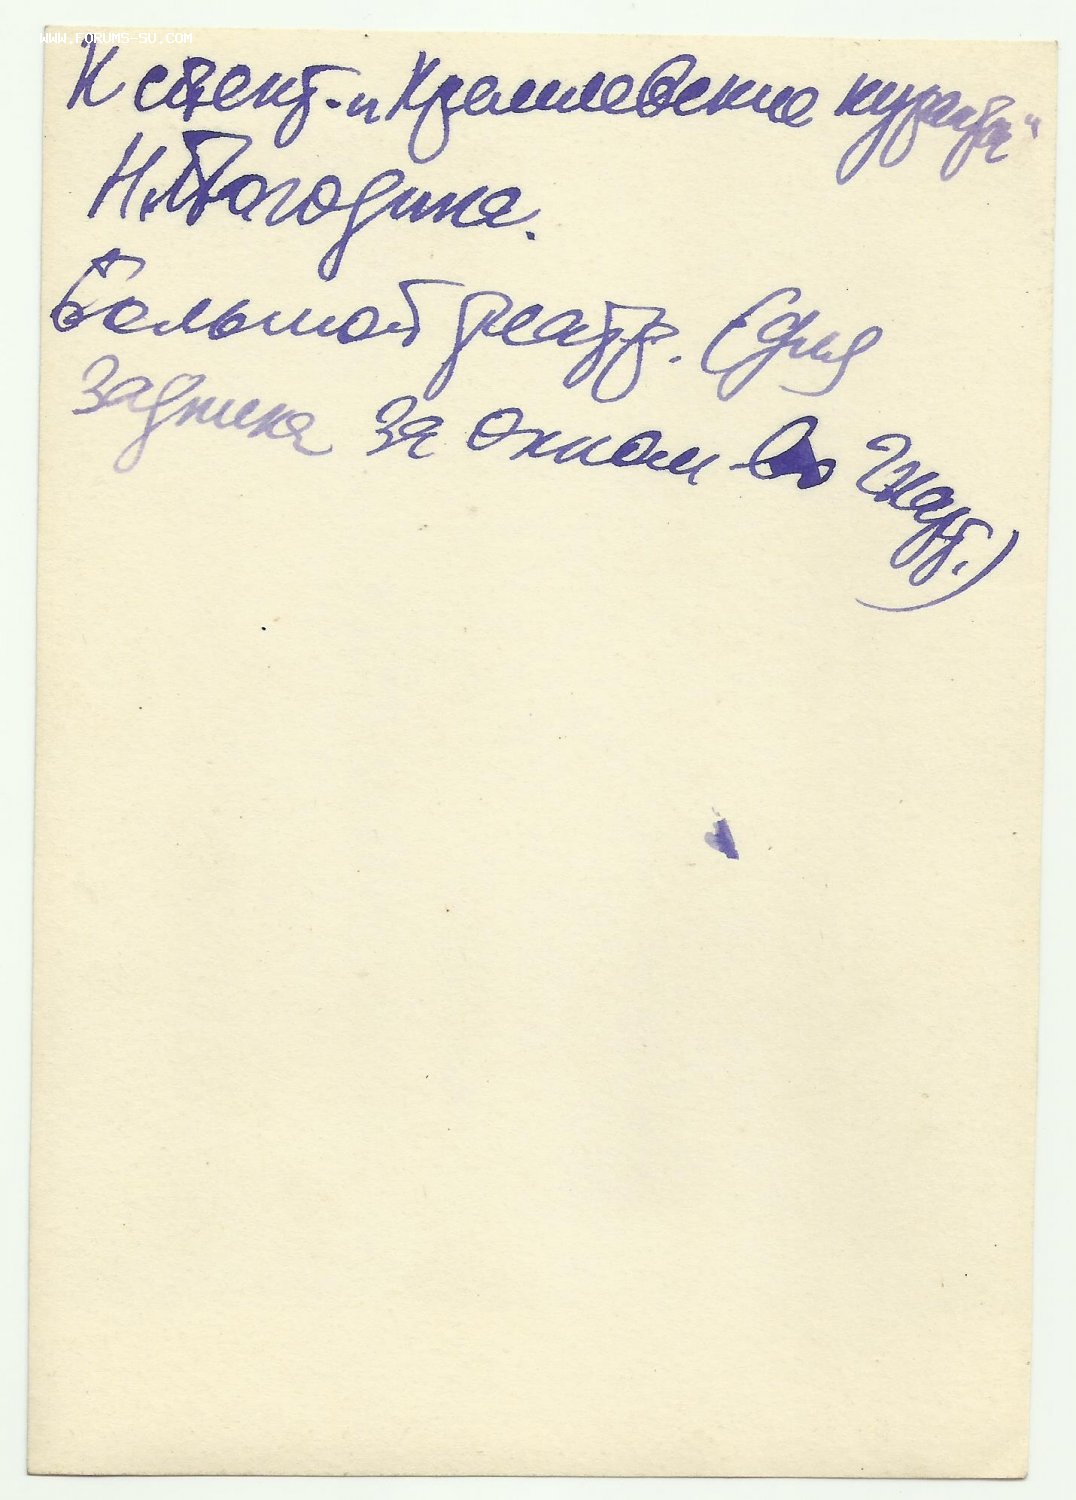 WWW.FORUMS-SU.COM
К спект. „Кремлевские куранты“
Н. Погодина.
Большой театр. (для
задника за окном во карт.)